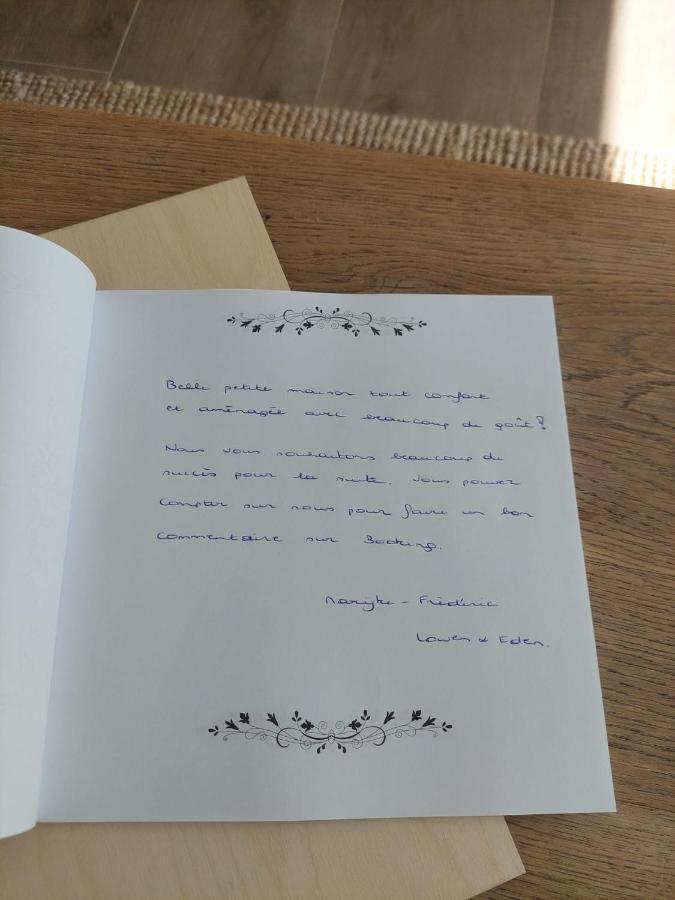 Belle petite maison tout confort
et aménagée avec beaucoup de goût !
Nous vous souhaitons beaucoup de
succès pour la suite. Vous pouvez
compter sur nous pour faire un bon
commentaire sur Booking.
Marijke - Frédéric
Lowen & Eden.